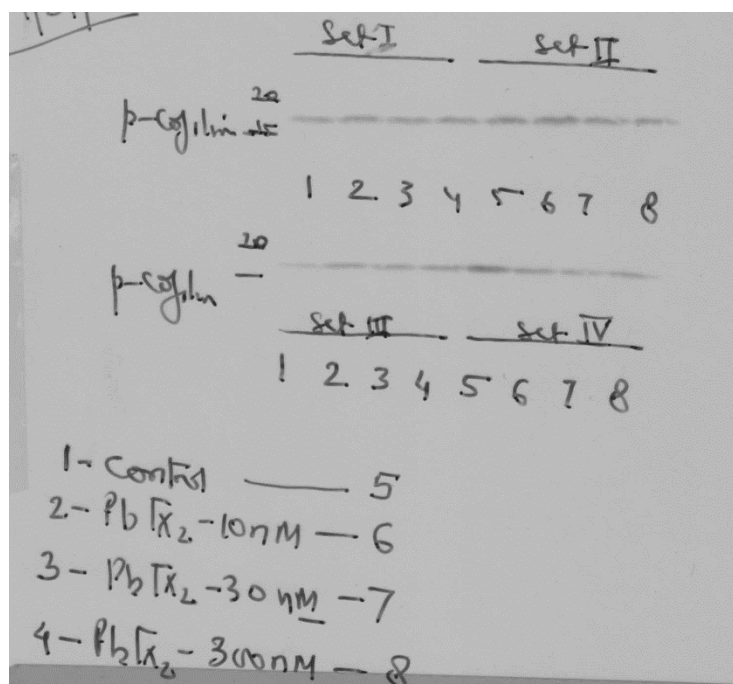 Set I Set II
20
p-cofilin 15
1 2 3 4 5 6 7 8
20
p-cofilin
Set III Set IV
1 2 3 4 5 6 7 8
1- Control — 5
2- PbTx2 - 10nM — 6
3 - PbTx2 - 30nM - 7
4 - PbTx2 - 300nM - 8